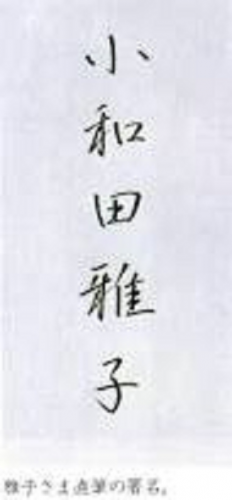 小和田雅子
雅子さま直筆の署名。